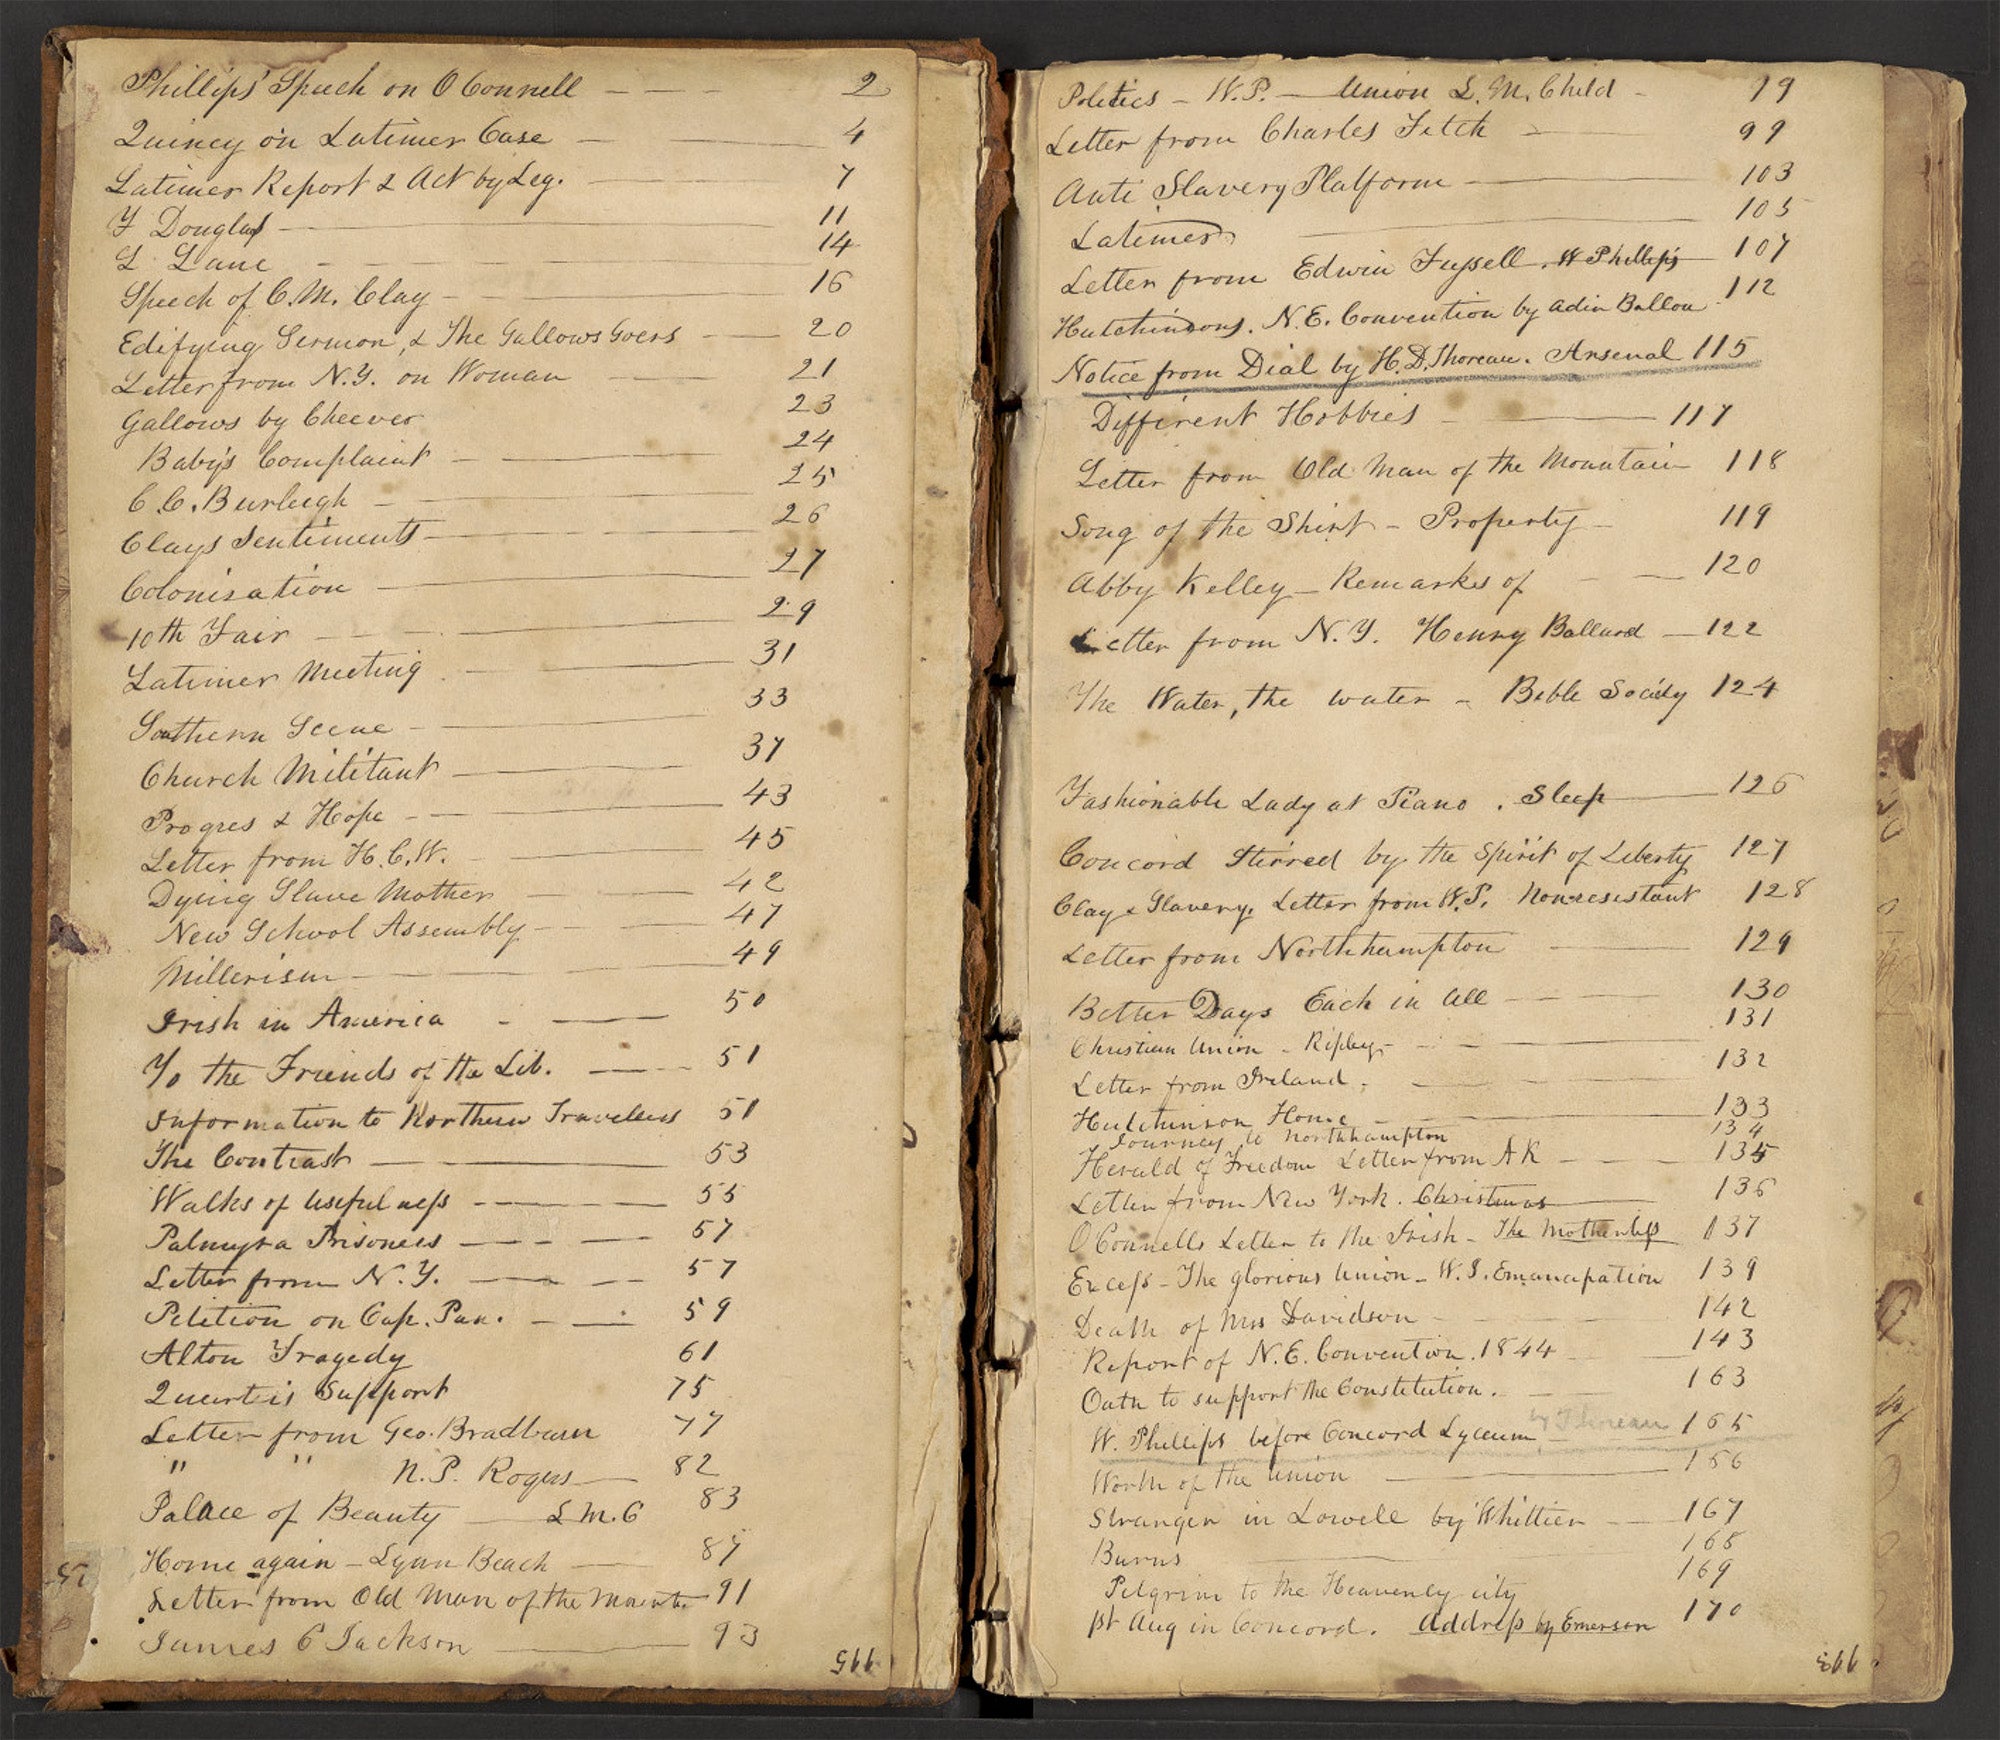 Phillips' Speech on O Connell 2
Quincy on Latimer Case 4
Latimer Report & Act by Leg. 7
F Douglass 11
L. Lane 14
Speech of C. M. Clay 16
Edifying Sermon, & The Gallows Goers 20
Letter from N.Y. on Woman 21
Gallows by Cheever 23
Baby's Complaint 24
C. C. Burleigh 25
Clays Sentiments 26
Colonisation 27
10th Fair 29
Latimer Meeting 31
Southern Scene 33
Church Militant 37
Progres & Hope 43
Letter from H. C. W. 45
Dying Slave Mother 42
New School Assembly 47
Millerism 49
Irish in America 50
To the Friends of the Lib. 51
Information to Northern Travellers 51
The Contrast 53
Walks of usefulness 55
Palmyra Prisoners 57
Letter from N. Y. 57
Petition on Cap. Pun. 59
Alton Tragedy 61
Support 75
Letter from Geo. Bradburn 77
" " N. P. Rogers 82
Palace of Beauty L M. C 83
Home again - Lynn Beach 87
Letter from Old Man of the Mount. 91
James C Jackson 93
995
Politics - W. P. - Union L. M. Child - 79
Letter from Charles Fitch 99
Anti Slavery Platform 103
Latimer 105
Letter from Edwin Fussell. W Phillips 107
Hutchinsons. N. E. Convention by Adin Ballou 112
Notice from Dial by H. D. Thoreau. Arsenal 115
Different Hobbies 117
Letter from Old Man of the Mountain 118
Song of the Shirt - Property 119
Abby Kelley - Remarks of 120
Letter from N. Y. Henry Ballard 122
The Water, the water - Bible Society 124
Fashionable Lady at Piano. Sleep 126
Concord Stirred by the Spirit of Liberty 127
Clay & Slavery. Letter from W. P. Nonresistant 128
Letter from Northhampton 129
Better Days Each in All 130
Christian Union - Ripley 131
Letter from Ireland. 132
Hutchinson Home 133
Journey to Northhampton 134
Herald of Freedom Letter from A K 135
Letter from New York. Christmas 136
O Connells Letter to the Irish - The Motherless 137
Excess - The glorious Union - W. I. Emancipation 139
Death of Mrs Davidson 142
Report of N. E. Convention. 1844 143
Oath to support the Constitution. 163
W. Phillips before Concord Lyceum by Thoreau 165
Worth of the Union 166
Stranger in Lowell by Whittier 167
Burns 168
Pilgrim to the Heavenly city 169
1st Aug in Concord. Address by Emerson 170